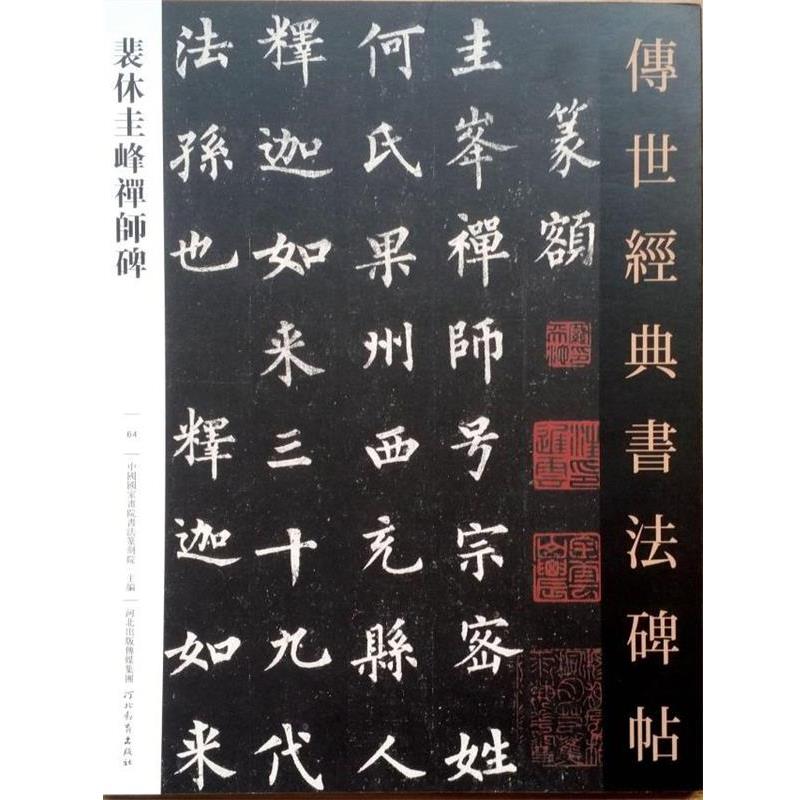 傳世經典書法碑帖
篆額
圭峯禪師号宗密姓
何氏果州西充縣人
釋迦如来三十九代
法孫也 釋迦如来
裴休圭峰禪師碑
64
中國國家畫院書法篆刻院·主編
河北出版傳媒集團
河北教育出版社